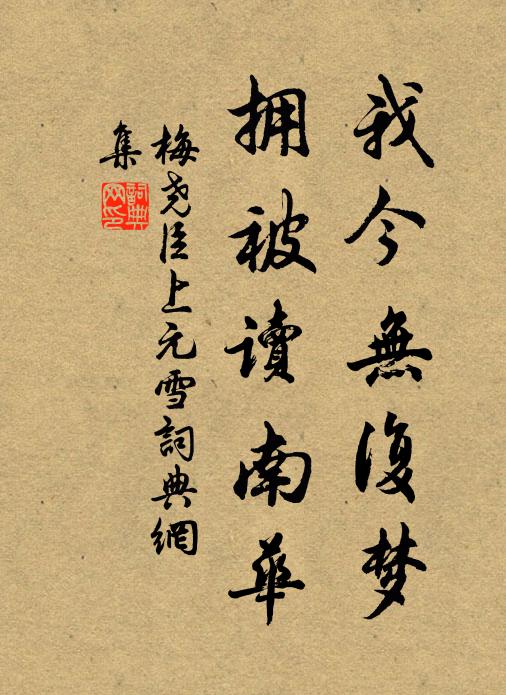 我今無復梦
拥被读南华
梅尧臣上元雪詞典網
集
詞典
网印